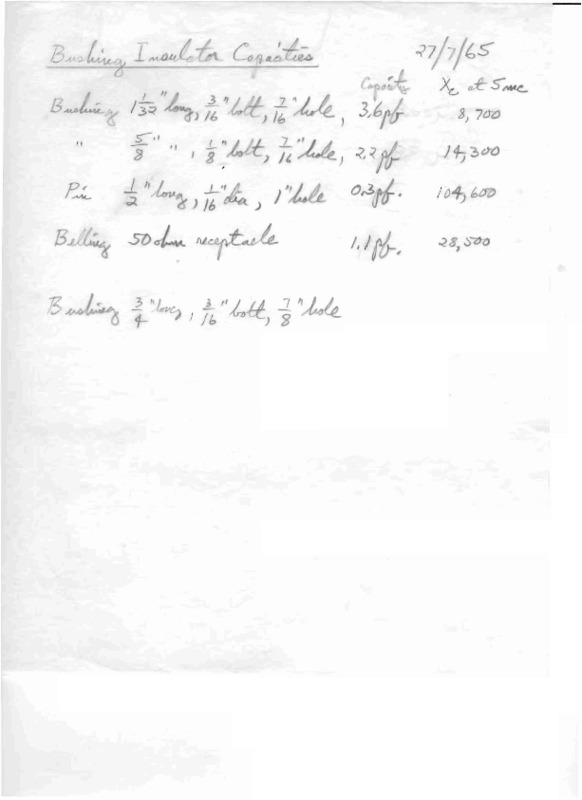 Bushing Insulator Capacities 27/7/65
Capacity Xc at 5 mc
Bushing 1 1/32" long, 3/16" bolt, 7/16" hole, 3.6pf 8,700
" 5/8" ", 1/8" bolt, 7/16" hole, 2.2pf 14,300
Pin 1/2" long, 1/16" dia, 1" hole 0.3pf. 104,600
Belling 50 ohm receptacle 1.1pf. 28,500
Bushing 3/4" long, 3/16" bolt, 7/8" hole